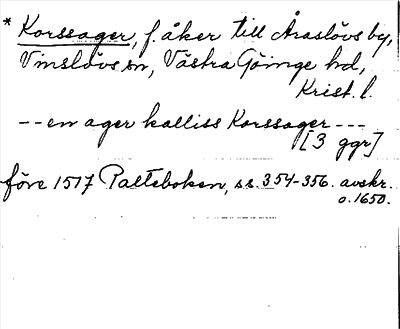 * Korssager, f. åker till Åraslövs by,
Vinslövs sn, Västra Göinge hd,
Krist. l.
-- en ager kalliss Korssager ---
[3 ggr]
före 1517 Palteboken, ss. 354-356. avskr.
o. 1650.